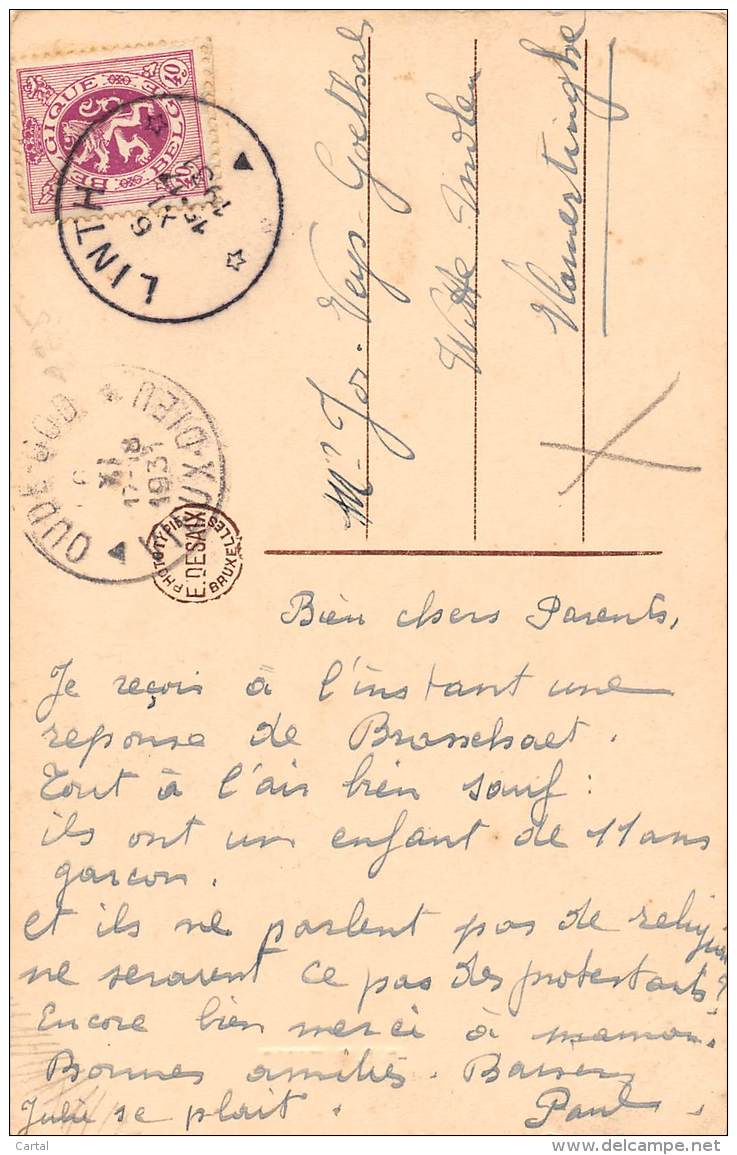 BELGIQUE
BELGIË
40c
LINTH
1931
OUDE-GOD
VIEUX-DIEU
XI
17-18
1931
PHOTOTYPIE
E. DESAIX
BRUXELLES
Mr Jos. Veys-Goethals
Witte
Vlamertinghe
Bien chers Parents,
Je reçois à l'instant une
reponse de Brasschaet.
Tout à l'air bien sauf :
ils ont un enfant de 11 ans
garcon.
et ils ne parlent pas de religion
ne seraient ce pas des protestants ?
Encore bien merci à maman.
Bonnes amitiés. Baisers
Julie se plait. Paul
Cartal
www.delcampe.net